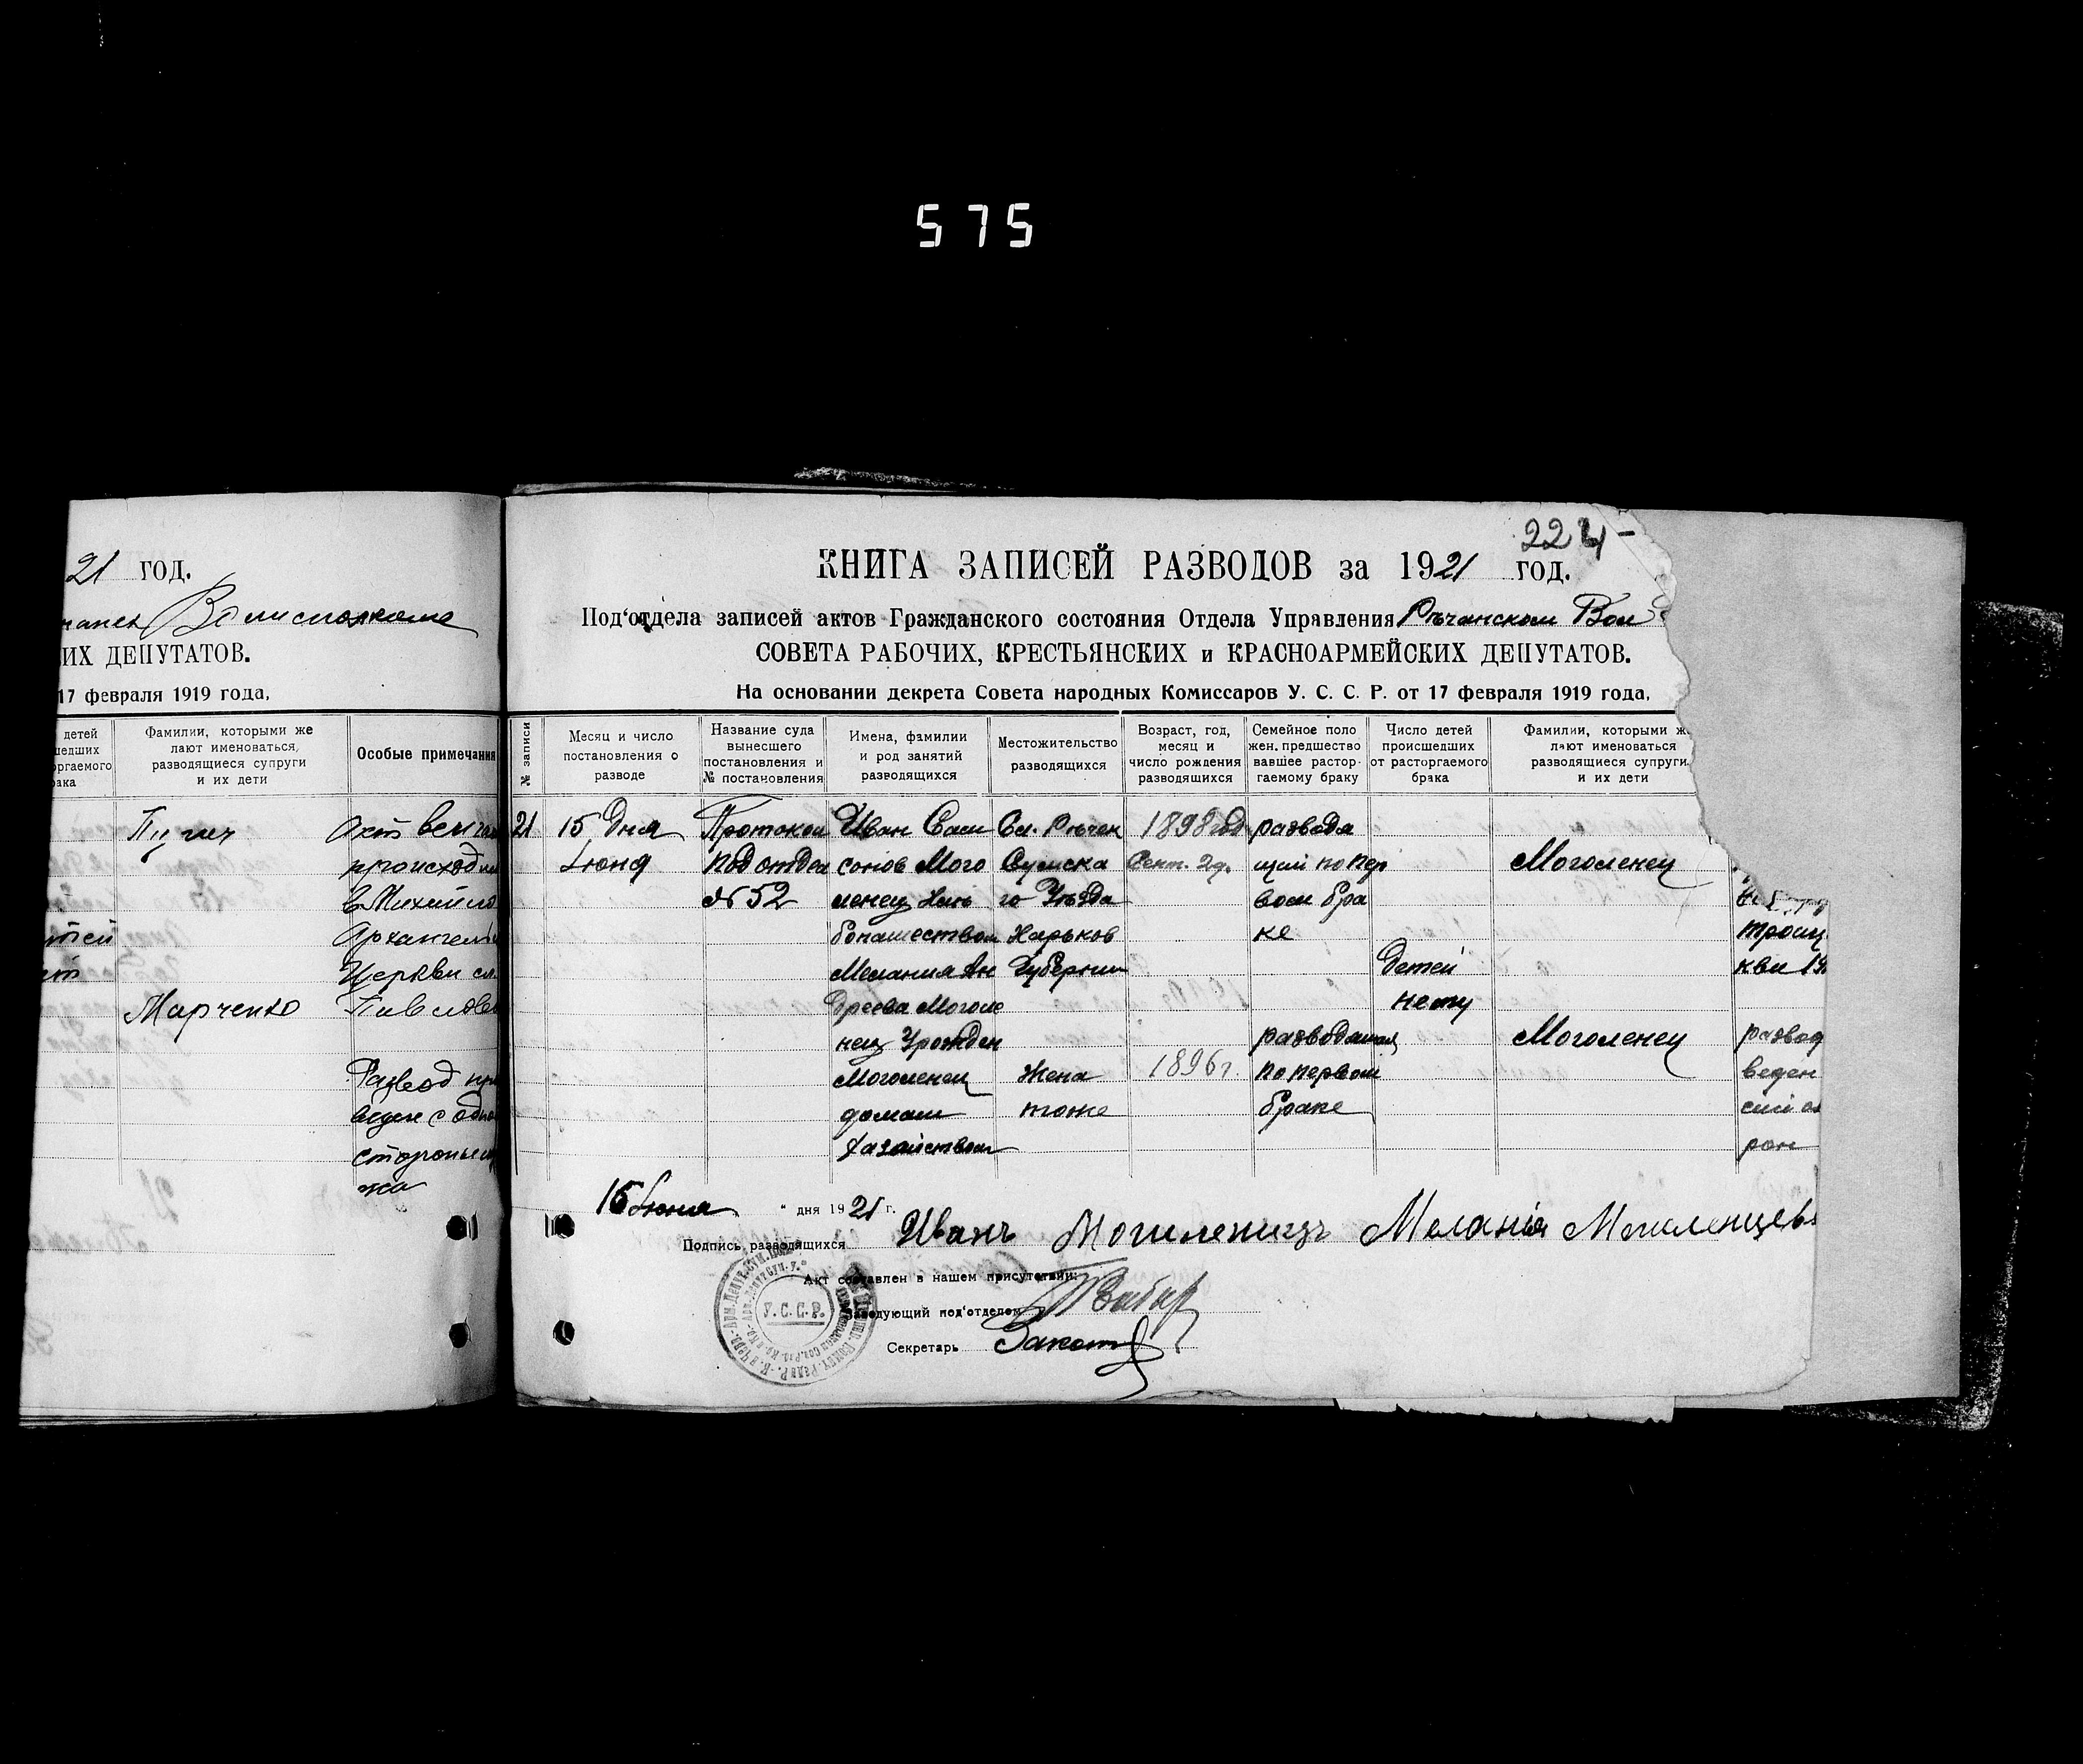 575
21 год.
Волисполкома
ИХ ДЕПУТАТОВ.
17 февраля 1919 года,
детей
шедших
оргаемого
рака
Фамилии, которыми же
лают именоваться,
разводящиеся супруги
и их дети
Особые примечания
Акт венчан
происходил
в Михайло
Архангельс
Церкви сл.
Марченко
Развод про
веден с одно
стороны м
жа
224-
КНИГА ЗАПИСЕЙ РАЗВОДОВ за 1921 год.
Под‘отдела записей актов Гражданского состояния Отдела Управления Речанском Вол
СОВЕТА РАБОЧИХ, КРЕСТЬЯНСКИХ и КРАСНОАРМЕЙСКИХ ДЕПУТАТОВ.
На основании декрета Совета народных Комиссаров У. С. С. Р. от 17 февраля 1919 года,
№ записи
Месяц и число
постановления о
разводе
Название суда
вынесшего
постановления и
№ постановления
Имена, фамилии
и род занятий
разводящихся
Местожительство
разводящихся
Возраст, год,
месяц и
число рождения
разводящихся
Семейное поло
жен. предшество
вавшее растор-
гаемому браку
Число детей
происшедших
от расторгаемого
брака
Фамилии, которыми же
лают именоваться
разводящиеся супруги
и их дети
21
15 дня
Июня
Протокол
подотдел
№ 52
Иван Саси
сонов Мого
ленец Хле
бопашеством
Мелания Ан
дреева Моголе
нец Урожден
Моголенец
домаш
хазайством
Сл. Речек
Сумска
го Уезда
Харьков
Губернии
Жена
тоже
1898 год
Сент. 2д.
1896 г.
развода
щий по пер
вом бра
ке
разводящая
по первом
браке
детей
нету
Моголенец
Моголенец
троиц
кви 19
развод
веден
сии ст
рон
15 Июня " дня 1921 г.
Подпись разводящихся Иванъ Могиленецъ Меланія Могиленцев
Акт составлен в нашем присутствии:
Заведующий под‘отделом
Секретарь
У.С.С.Р.